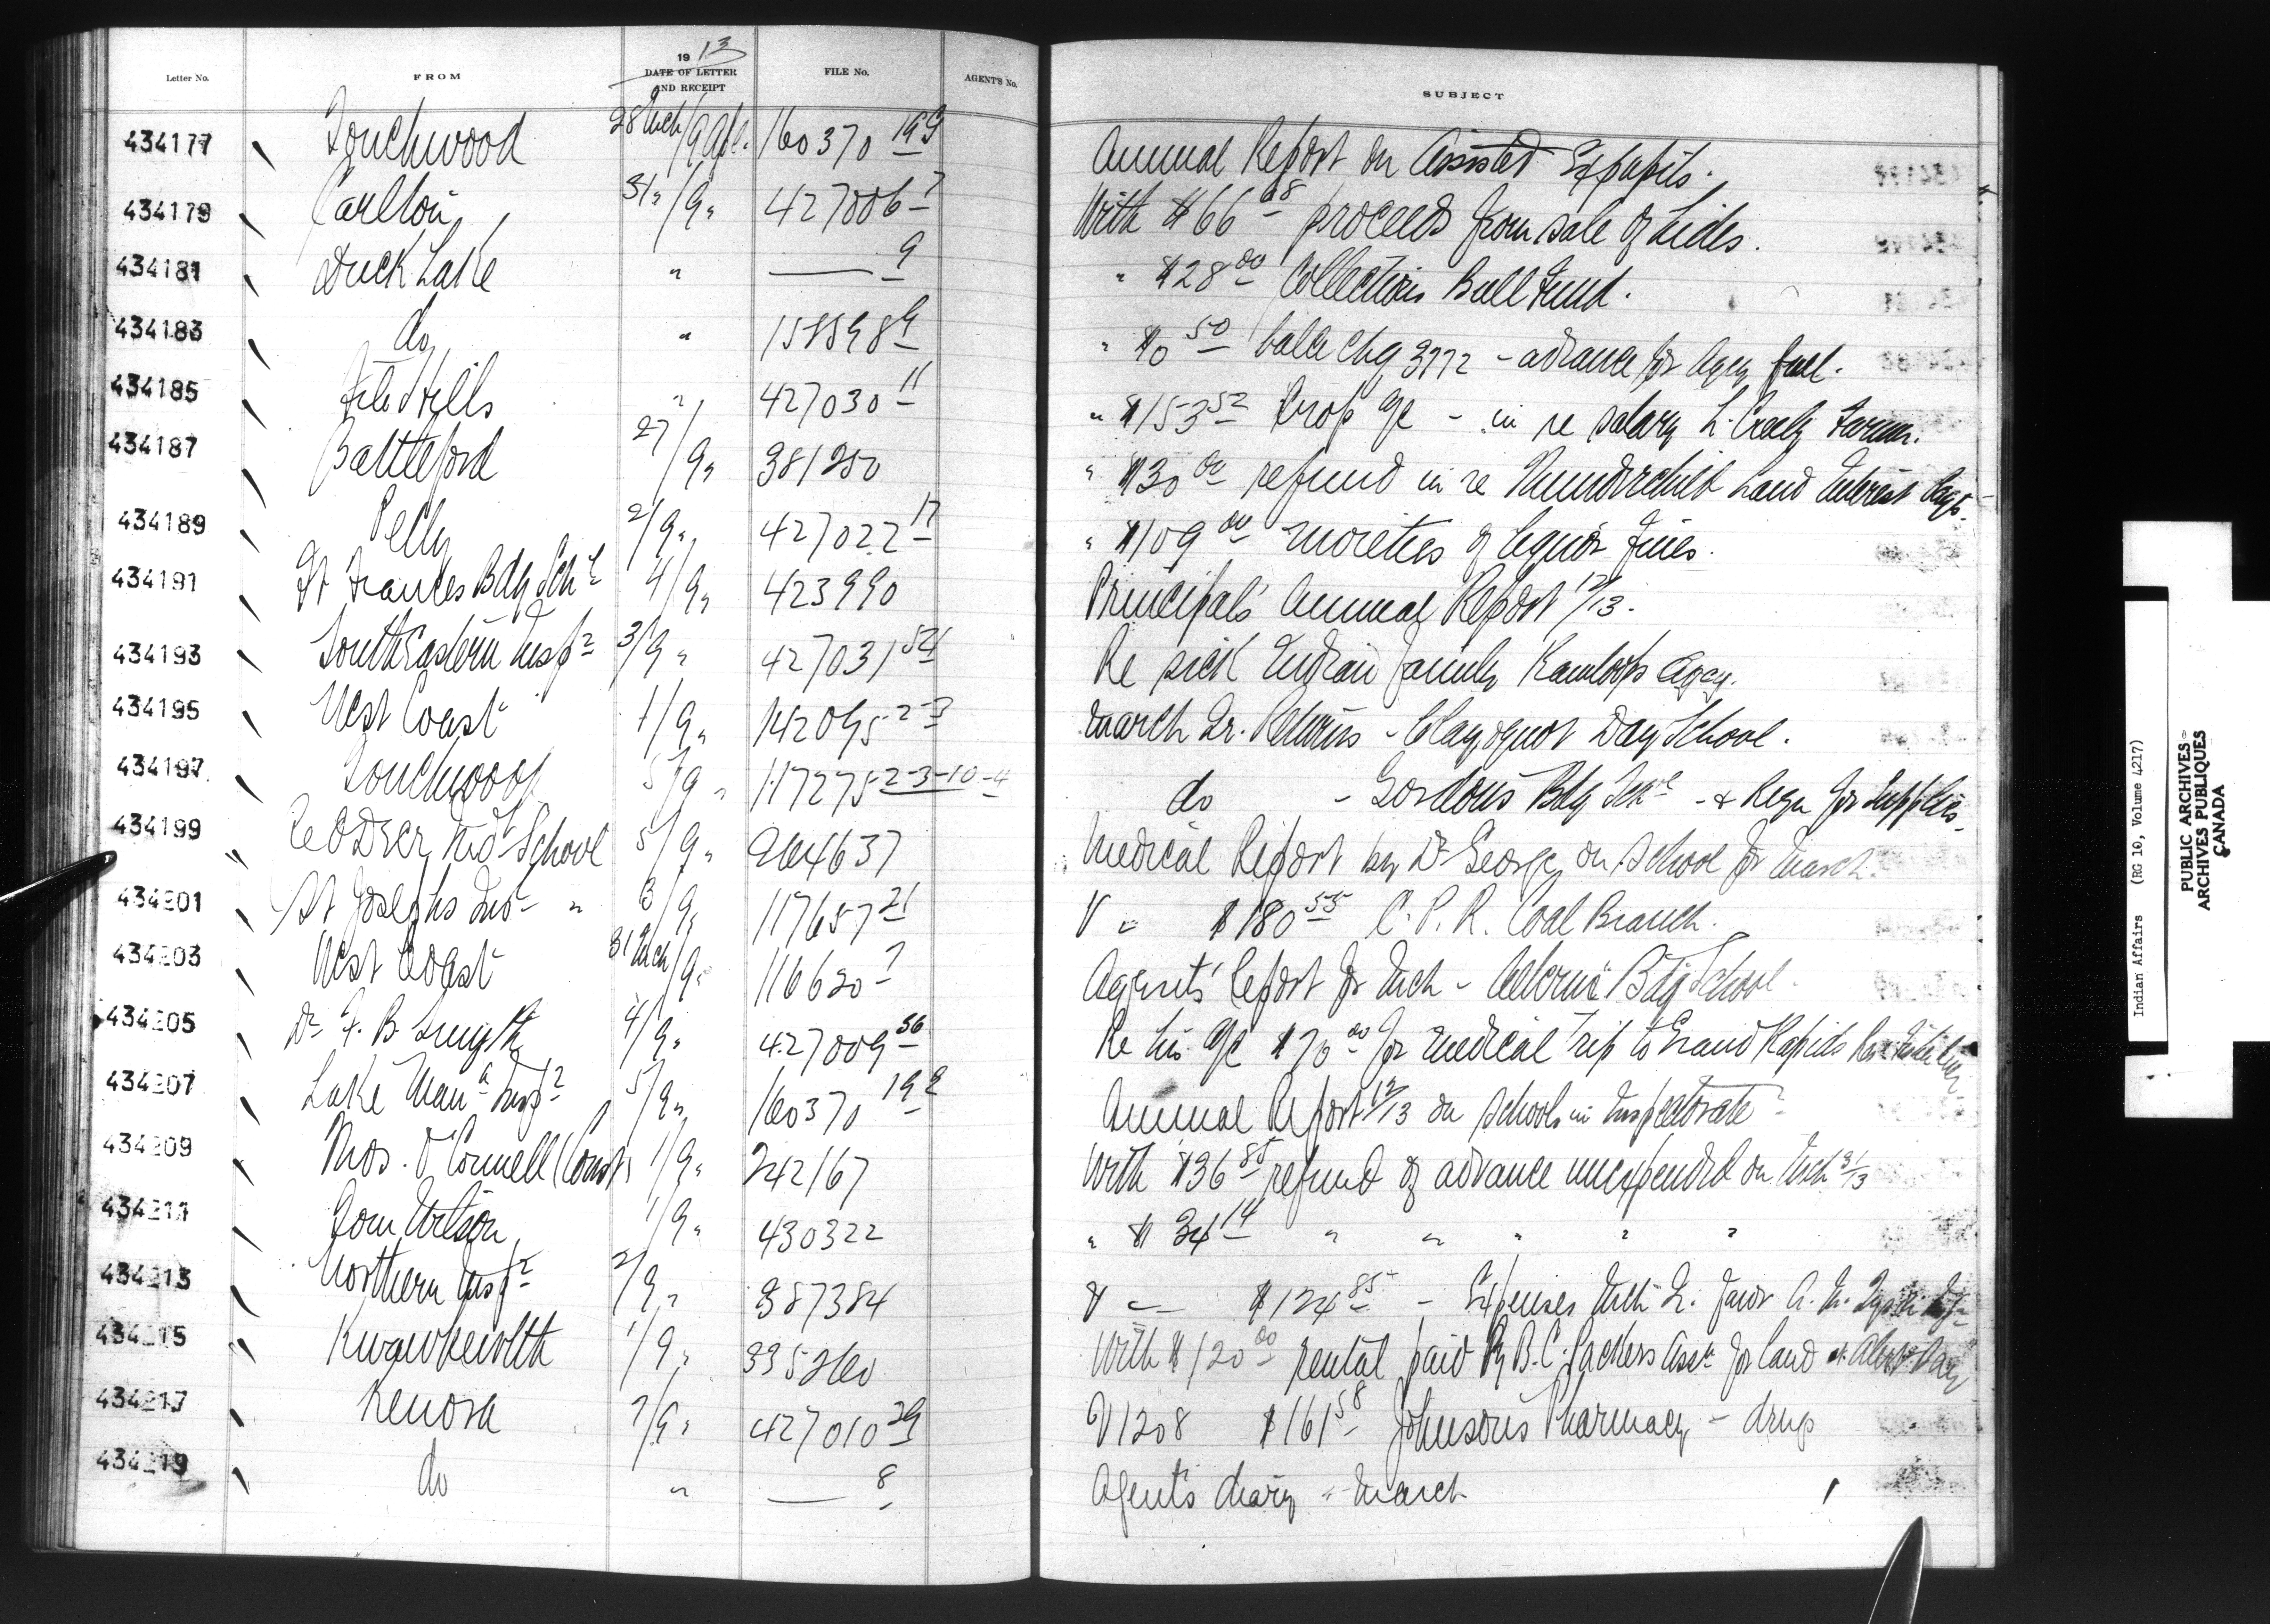 Letter No. FROM 1913 DATE OF LETTER AND RECEIPT FILE No. AGENT'S No. SUBJECT
434177 Touchwood 28 Mch/9 Apl. 160370 199 Annual Report on Assisted Expupils.
434179 Carlton 31 " /9 " 427006 7 With $66 68 proceeds from sale of hides.
434181 Duck Lake " —— 9 " $28 00 Collections Bull Fund.
434183 do " 158898 9 " $0 50 balce chq 3772 - advance for Agcy fuel.
434185 File Hills " 427030 11 " $153 52 Crop a/c - in re salary L. Creely Farmer.
434187 Battleford 27/9 " 381250 " $30 00 refund in re Thunderchild Land Interest
434189 Pelly 2/9 " 427022 17 " $109 00 moieties of liquor fines.
434191 St Frances Bdg Schl 4/9 " 423990 Principal's Annual Report 12/13.
434193 South Eastern Insp 3/9 " 427031 54 Re sick Indian family Kamloops Agcy.
434195 West Coast 1/9 " 142095 2-3 March Qr. Returns - Clayoquot Day School.
434197 Touchwood 5/9 " 117275 2-3-10-4 do - Gordons Bdg Schl - & Reqn for Supplies.
434199 Red Deer Ind School 5/9 " 264637 Medical Report by Dr George on School for March
434201 St Josephs Ind " 3/9 " 117657 21 V " $180 55 C.P.R. Coal Branch.
434203 West Coast 31 Mch/9 " 116620 7 Agents' Report for Mch - Alberni Bdg School.
434205 Dr F. B. Smyth 4/9 " 427009 56 Re his a/c $70 00 for medical trip to Grand Rapids
434207 Lake Mana Insp 5/9 " 160370 192 Annual Report 12/13 on schools in Inspectorate
434209 Thos. O'Connell (Const) 1/9 " 242167 With $36 85 refund of advance unexpended on Mch 31/13
434211 Tom Wilson 1/9 " 430322 " $34 14 " " " " "
434213 Northern Insp 2/9 " 387384 V — $124 85 - Expenses Mch Qr. favor
434215 Kwawkewlth 1/9 " 335260 With $120 00 rental paid by B.C. Packers Assn for land at Alert Bay
434217 Kenora 7/9 " 427010 29 V1208 $161 58 Johnson's Pharmacy - drugs
434219 do " —— 8 Agent's diary - March
Indian Affairs (RG 10, Volume 4217)
PUBLIC ARCHIVES
ARCHIVES PUBLIQUES
CANADA